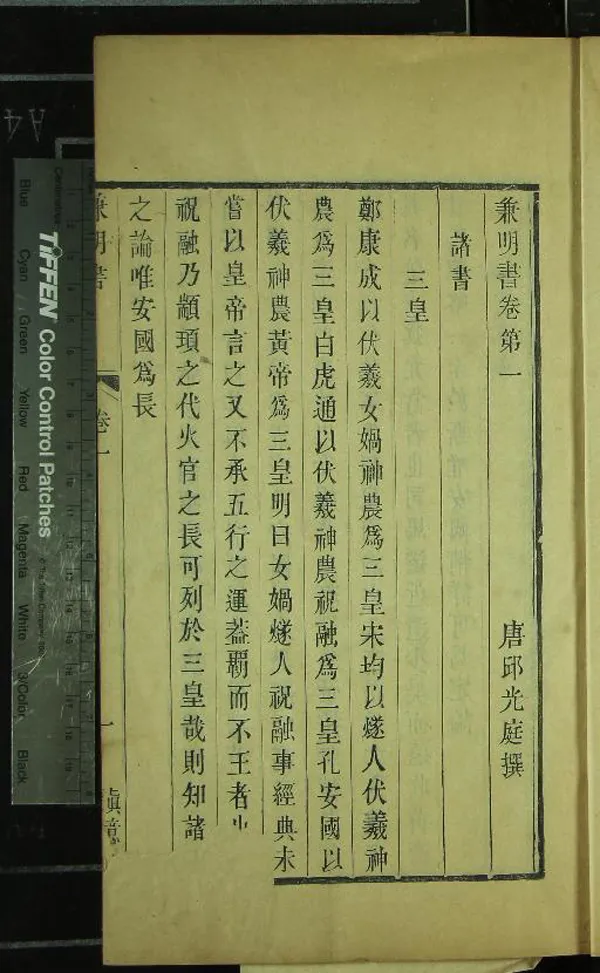 兼明書卷第一
唐邱光庭撰
諸書
三皇
鄭康成以伏羲女媧神農爲三皇宋均以燧人伏羲神
農爲三皇白虎通以伏羲神農祝融爲三皇孔安國以
伏羲神農黃帝爲三皇明曰女媧燧人祝融事經典未
嘗以皇帝言之又不承五行之運蓋霸而不王者也
祝融乃顓頊之代火官之長可列於三皇哉則知諸
之論唯安國爲長
兼明書
卷一
一
A4
TIFFEN Color Control Patches
Blue
Cyan
Green
Yellow
Red
Magenta
White
3/Color
Black